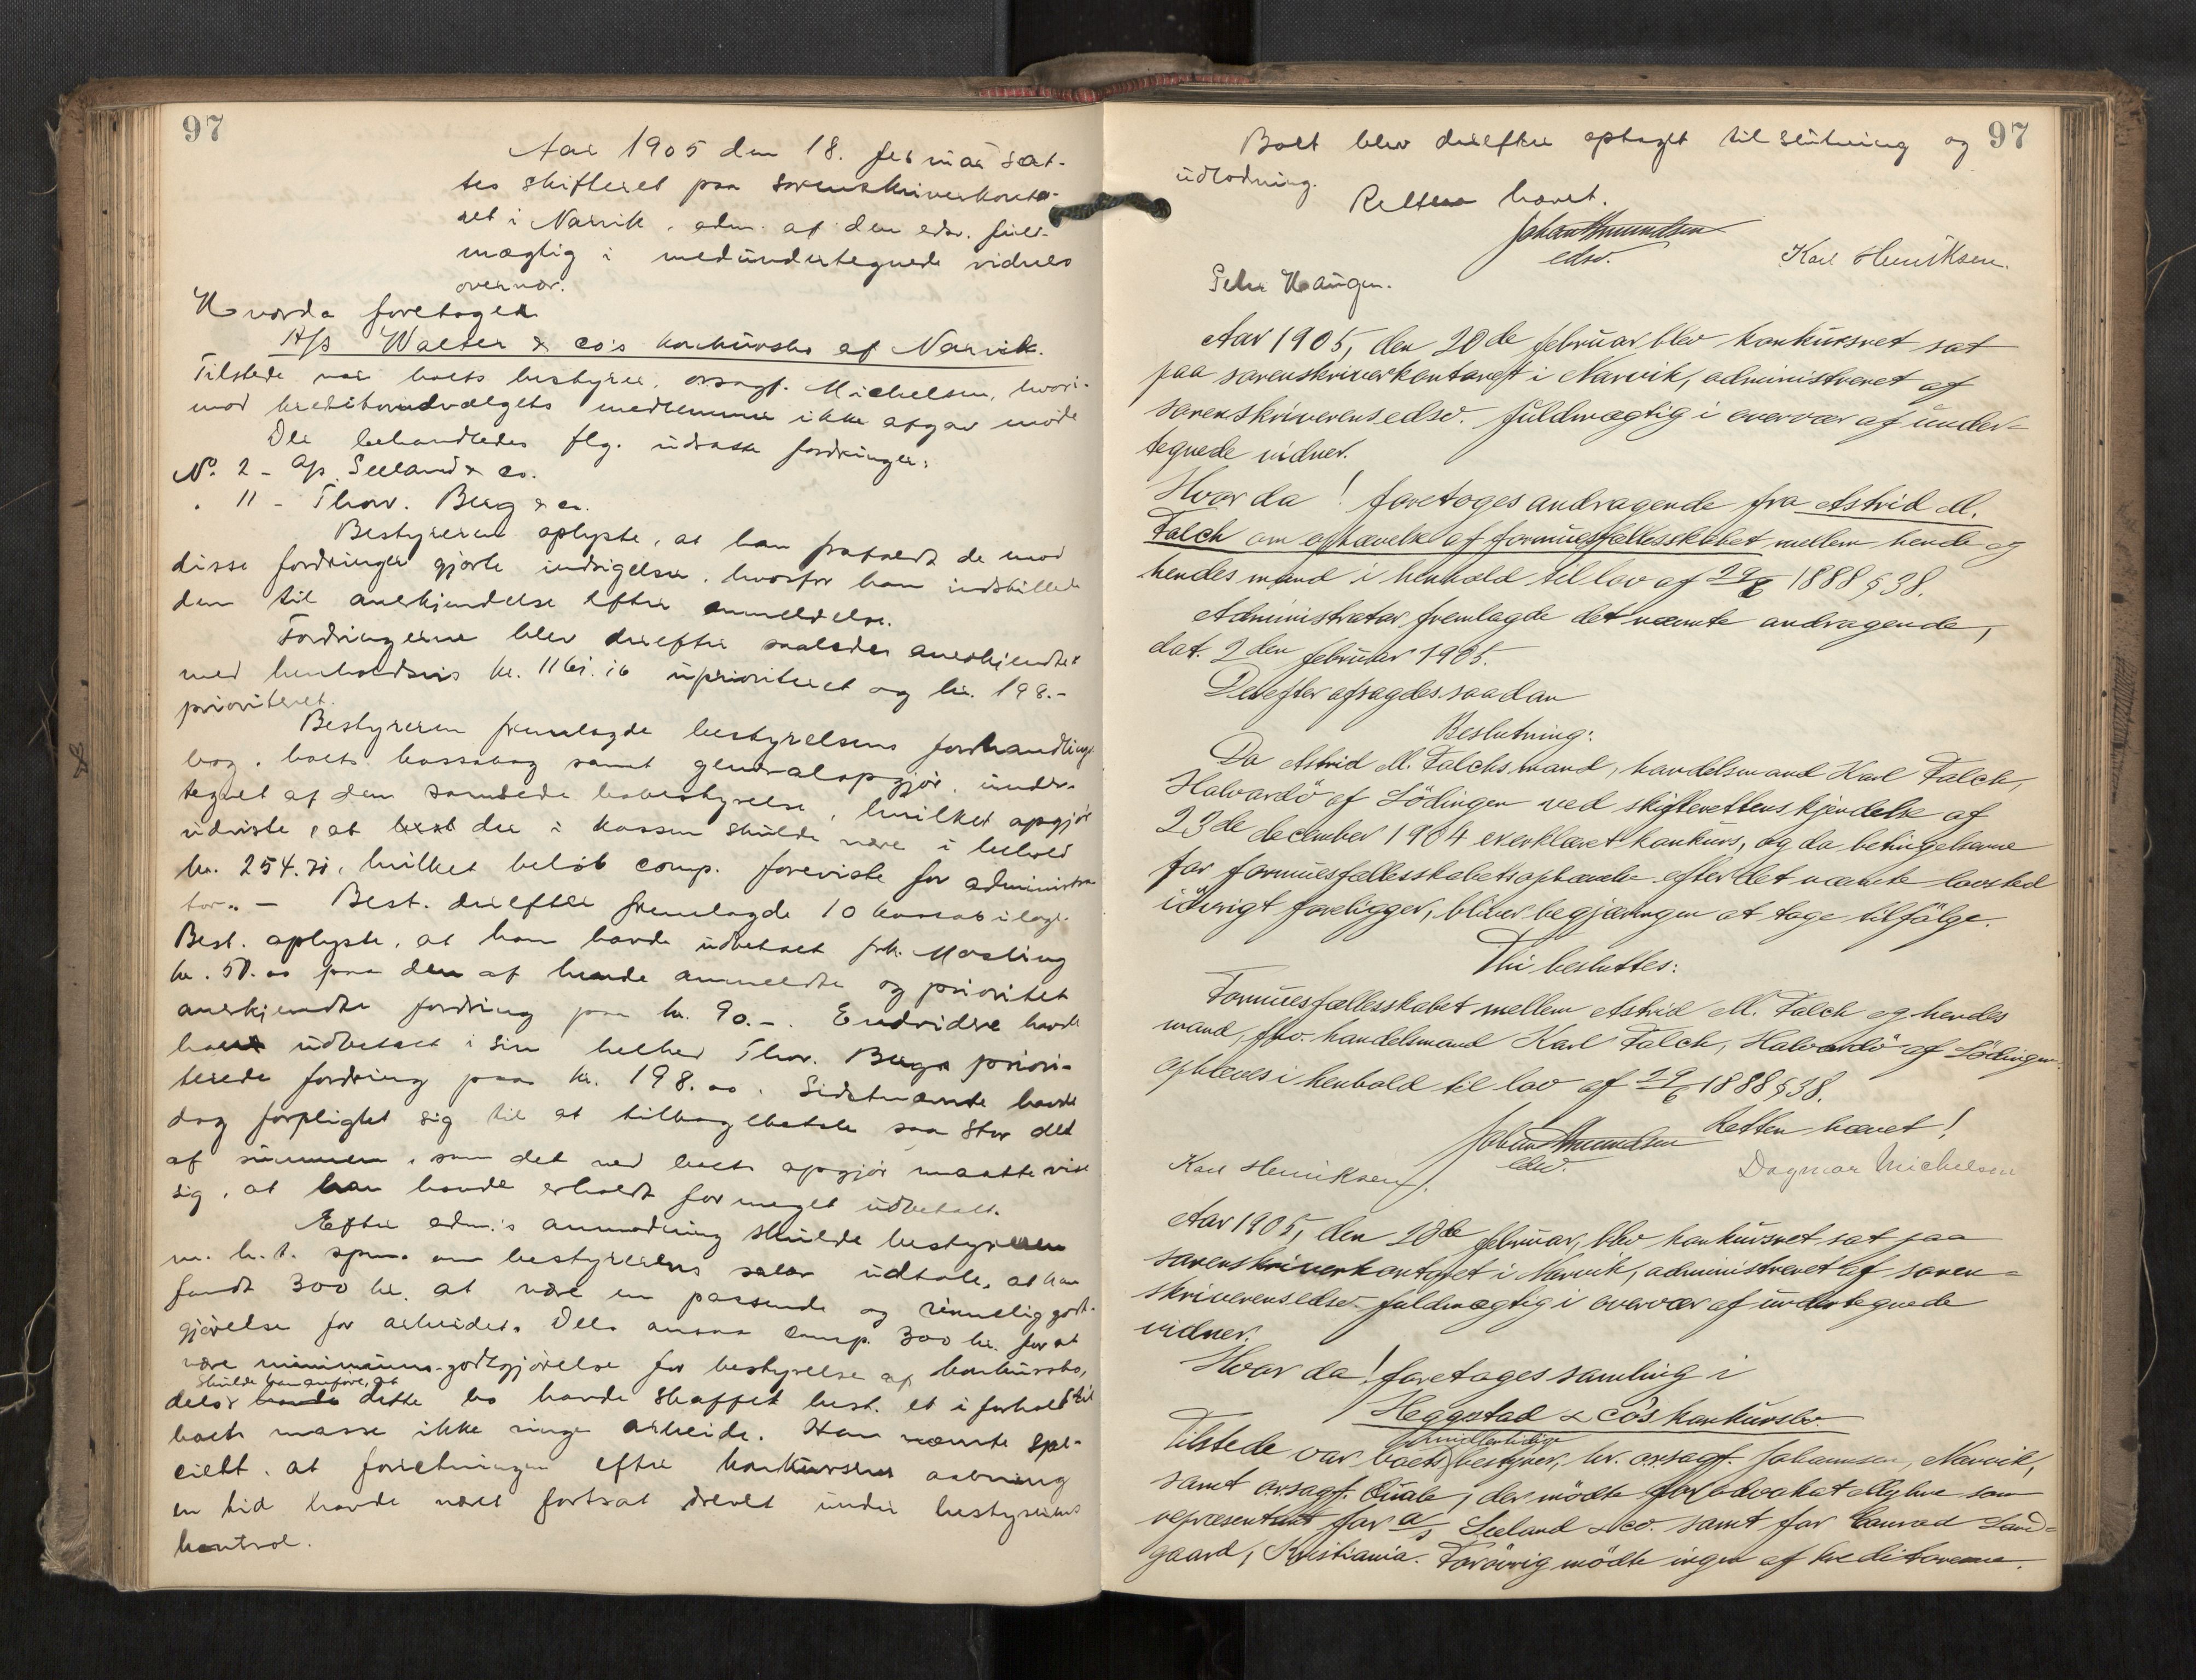 97
Aar 1905 den 18. februar sat-
tes skifteret paa sorenskriverkonto-
ret i Narvik, adm. af den edsv. full-
mægtig i medundertegnede vidners
overvær.
Hvorda foretoges
A/s Walter & co's konkursbo af Narvik.
Tilstede var boets bestyrer, orsagf. Michelsen, hvori-
mod kreditorudvalgets medlemmer ikke afgav møde
Der behandledes flg. udsatte fordringer:
No. 2 - A/s Seeland & co.
" 11 - Thorv. Berg & co.
Bestyreren oplyste, at han frafaldt de mod
disse fordringer gjorte indsigelser, hvorfor han indstillede
dem til anerkjendelse efter anmeldelse.
Fordringerne blev derefter saaledes anerkjendte:
med henholdsvis kr. 1161.16 uprioriteret og kr. 198.-
prioriteret.
Bestyreren fremlagde bestyrelsens forhandlings-
bog, boets kassabog samt generalopgjør, under-
tegnet af den samlede bobestyrelse, hvilket opgjør
udviste, at der i kassen skulde være i behold
kr. 254.71, hvilket beløb comp. foreviste for administra-
tor. - Best. derefter fremlagde 10 kassabilage.
Best. oplyste, at han havde udbetalt frk. Mosling
kr. 50.00 paa den af hende anmeldte og prioritet
anerkjendte fordring paa kr. 90.-. Endvidere havde
han udbetalt i sin helhed Thor. Bergs priori-
terede fordring paa kr. 198.00. Sidstnævnte havde
dog forpligtet sig til at tilbagebetale saa stor del
af summen, som det ved boets opgjør maatte vise
sig, at han havde erholdt for meget udbetalt.
Efter adm.s anmodning skulde bestyreren
m. h. t. spm. om bestyrerens salær udtale, at han
fandt 300 kr. at være en passende og rimelig godt-
gjørelse for arbeidet. Dels ansaa comp. 300 kr. for at
være minimums-godtgjørelse for bestyrelse af konkursbo,
skulde han anføre, at
dels havde dette bo havde skaffet best. et i forhold til
boets masse ikke ringe arbeide. Han nævnte spe-
cielt, at forretningen efter konkursens aabning
en tid havde været fortsat drevet under bestyrerens
kontrol.
97
Boet blev derefter optaget til slutning og
udlodning.
Retten hævet.
Johan Amundsen
edsv.
Karl Henriksen.
Peter Haugen.
Aar 1905, den 20de februar blev konkursret sat
paa sorenskriverkontoret i Narvik, administreret af
sorenskriverens edsv. fuldmægtig i overvær af under-
tegnede vidner.
Hvor da! foretoges andragende fra Astrid M.
Falch om ophævelse af formuesfællesskabet mellem hende og
hendes mand i henhold til lov af 29/6 1888 § 38.
Administrator fremlagde det nævnte andragende,
dat. 2den februar 1905.
Derefter afsagdes saadan
Beslutning:
Da Astrid M. Falchs mand, handelsmand Karl Falch,
Halvardö af Lödingen ved skifterettens kjendelse af
23de december 1904 er erklæret konkurs, og da betingelserne
for formuesfællesskabets ophævelse efter det nævnte lovsted
iövrigt foreligger, bliver begjæringen at tage tilfölge.
Thi besluttes:
Formuesfællesskabet mellem Astrid M. Falch og hendes
mand, fhv. handelsmand Karl Falch, Halvardö af Lödingen
ophæves i henhold til lov af 29/6 1888 § 38.
Retten hævet!
Johan Amundsen
edsv.
Karl Henriksen.
Dagmar Michelsen
Aar 1905, den 20de februar, blev konkursret sat paa
sorenskriverkontoret i Narvik, administreret af soren-
skriverens edsv. fuldmægtig i overvær af undertegnede
vidner.
Hvor da! foretoges samling i
Heggstad & co's konkursbo.
Tilstede var boets midlertidige bestyrer, hr. orsagf. Johannsen, Narvik,
samt orsagf. Quale, der mödte for advokat som
repræsentant for a/s Seeland & co. samt for Conrad Land-
gaard, Kristiania. Forövrig mödte ingen af kreditorerne.